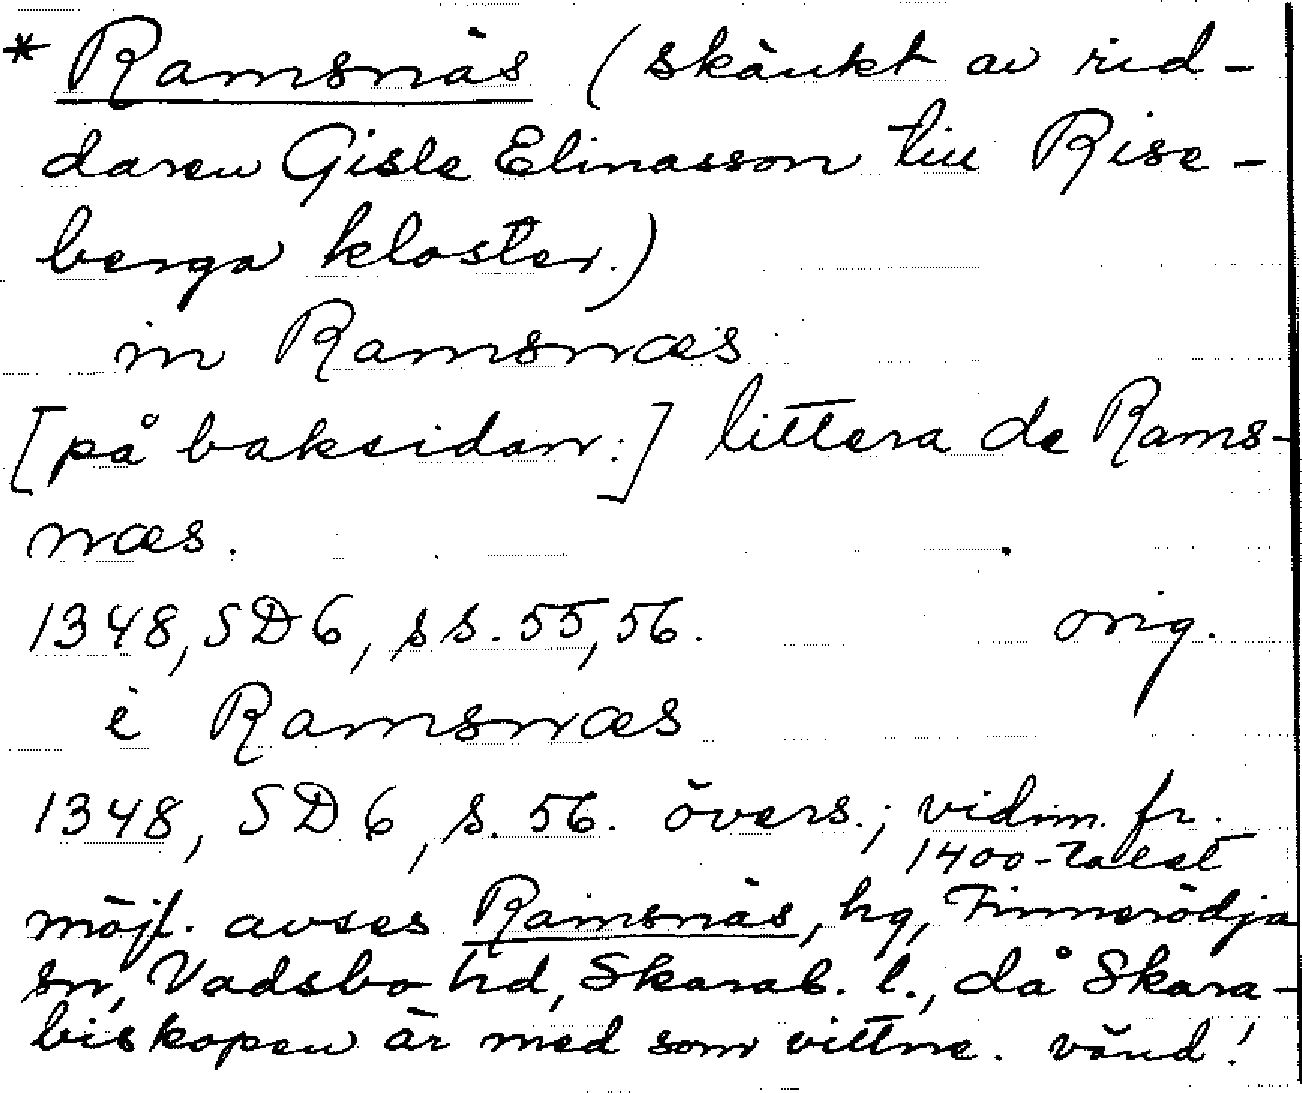 * Ramsnäs (skänkt av rid-
daren Gisle Elinasson till Rise-
berga kloster.)
in Ramsnæs
[på baksidan:] littera de Rams-
næs.
1348, SD 6, ss. 55, 56. orig.
i Ramsnæs
1348, SD 6, s. 56. övers.; vidim. fr.
1400-talet
möjl. avses Ramsnäs, hg, Finnerödja
sn, Vadsbo hd, Skarab. l., då Skara-
biskopen är med som vittne. vänd!